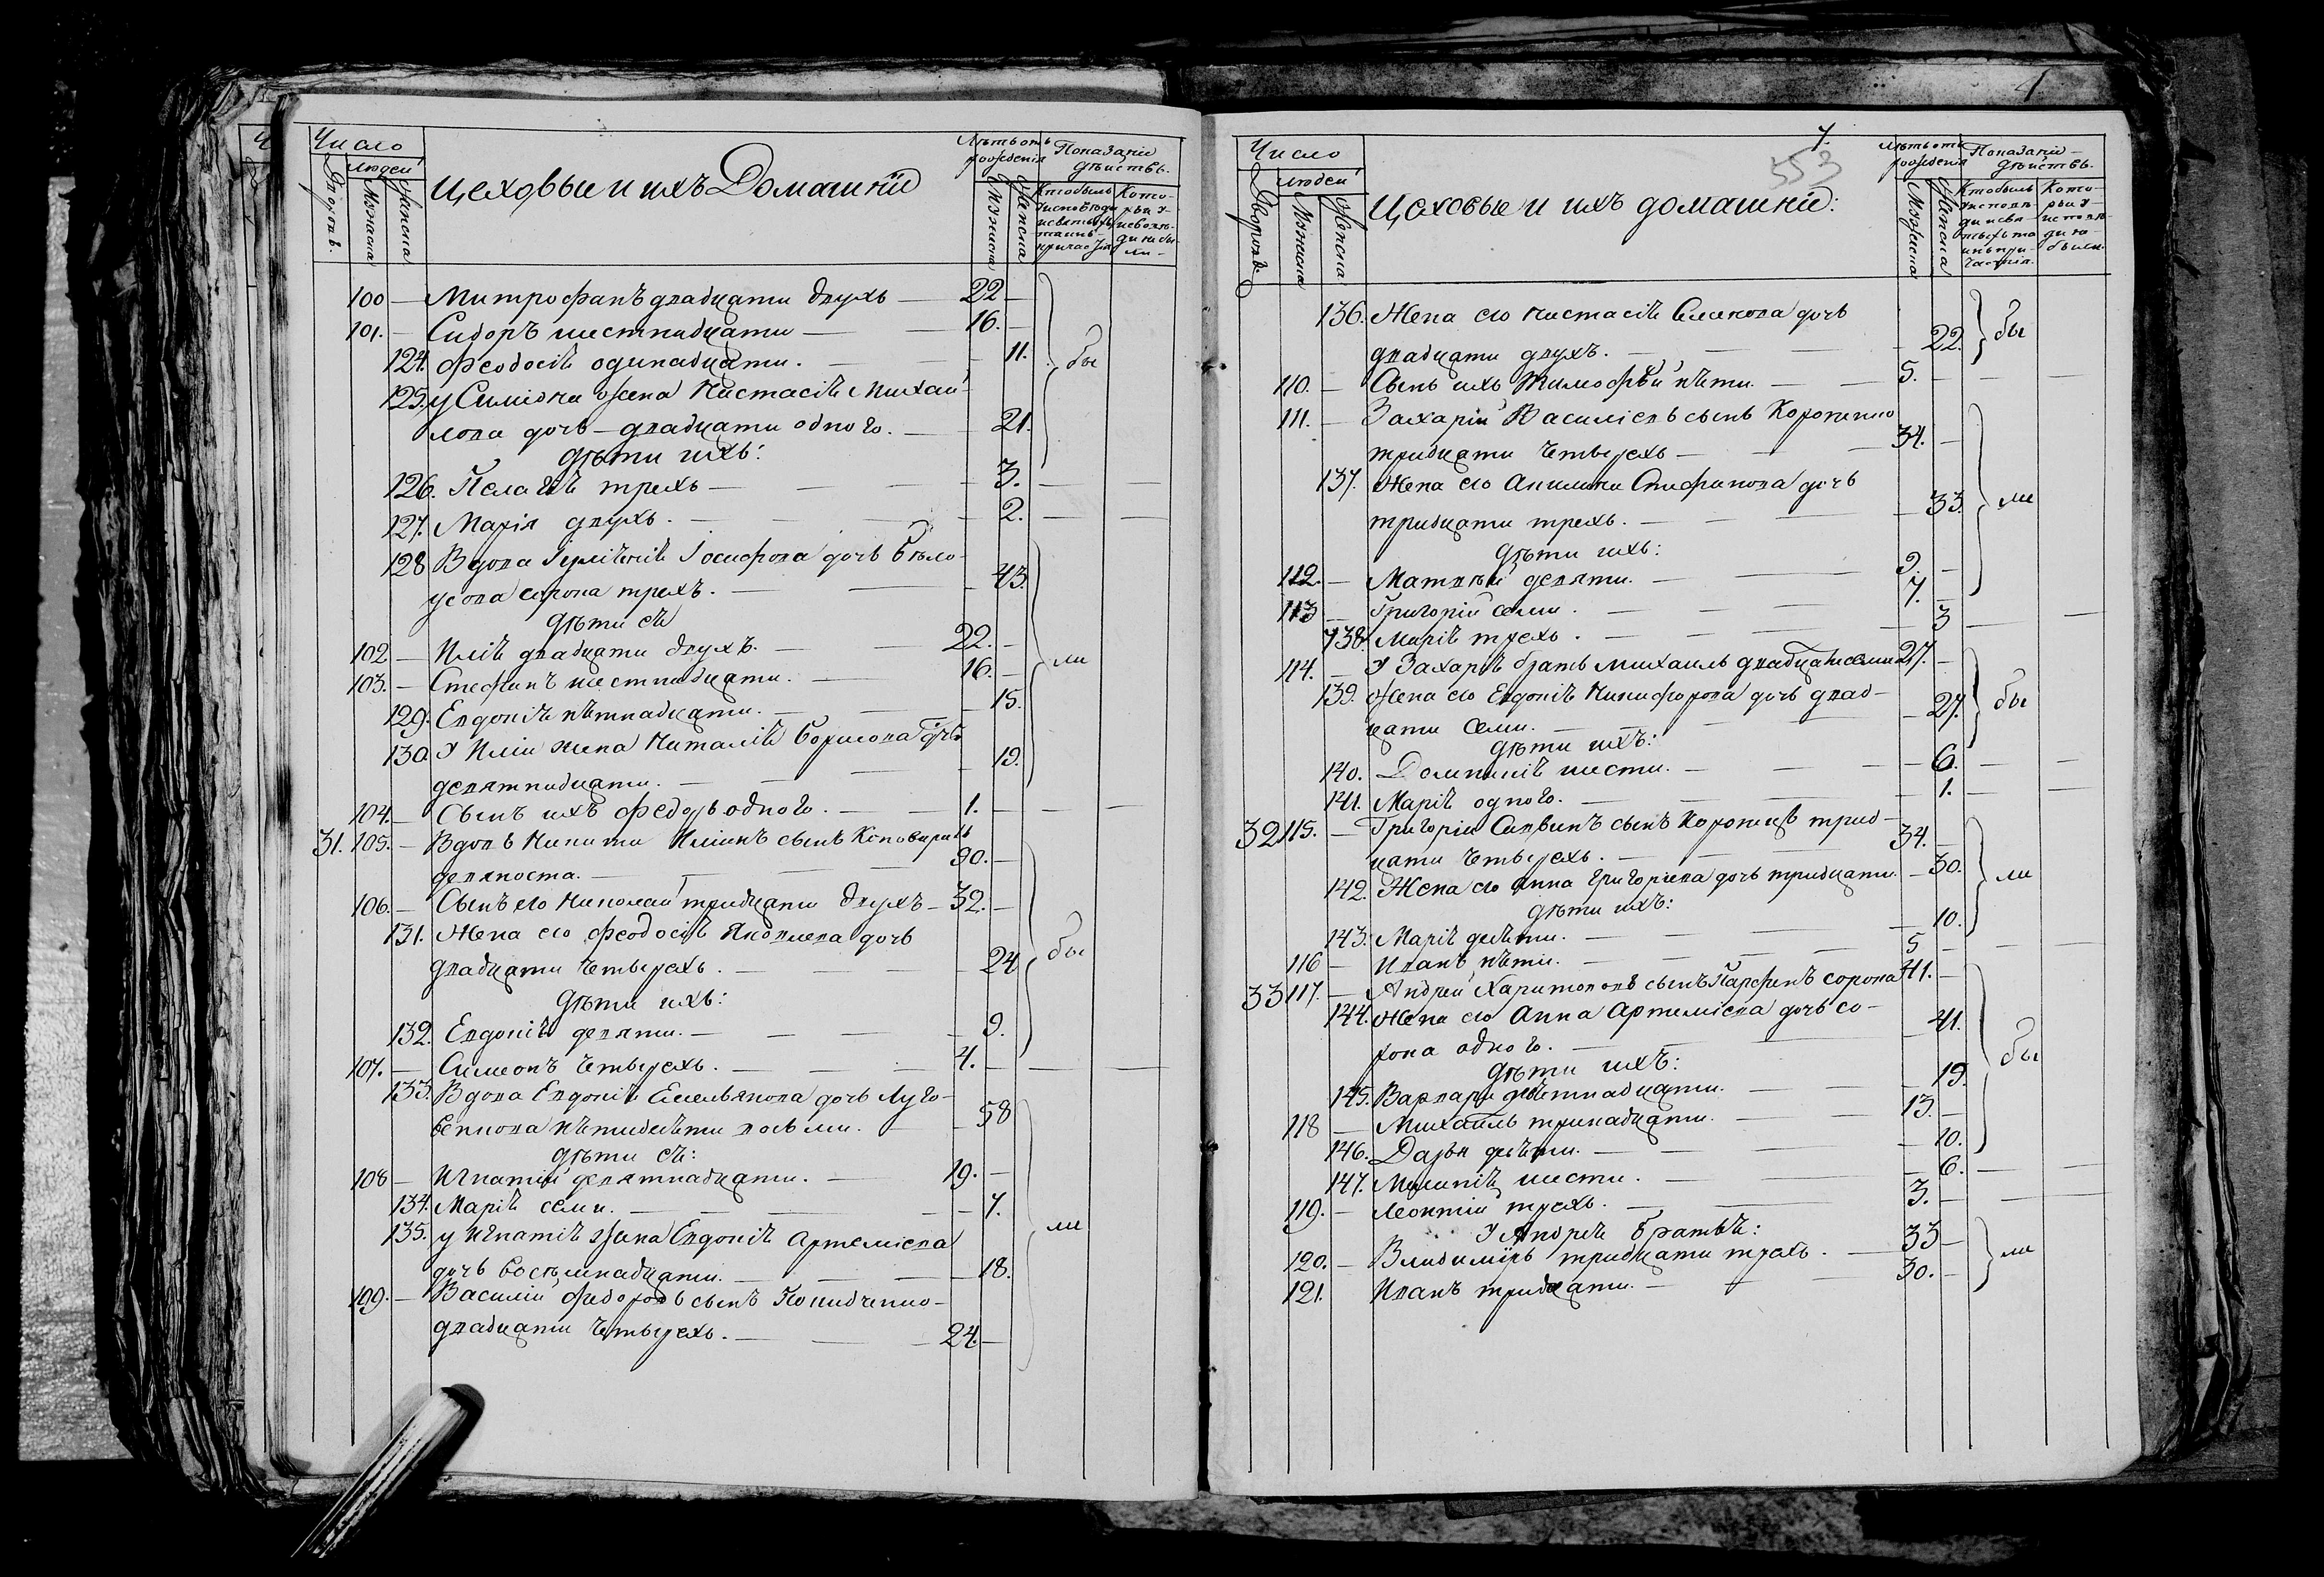 Число
Людей
Дворовъ.
Мужеска
Женска
Цеховые и ихъ Домашнїе
Лѣтъ отъ рожденія
Мужеска
Женска
Показаніе дѣйствъ.
Кто былъ
Кото-
100 — Митрофанъ двадцати двухъ — 22 —
101. — Сидоръ шестнадцати — 16. —
124. Феодосіѣ одинадцати. — 11. бы
125. у Симіона жена Настасіѣ Михай-
лова дочь — двадцати одного. — 21.
Дѣти ихъ:
126. Пелагіѣ трехъ — 3. —
127. Марія двухъ. — 2. —
128 Вдова Іосифова дочь Бѣло-
усова сорока трехъ. — 43
Дѣти еѣ
102 — Иліѣ двадцати двухъ. — 22. —
103. — Стефанъ шестнадцати. — 16. — ли
129. Евдокіѣ пѣтнадцати. — 15.
130 У Иліи жена Наталіѣ Борисова дочь
девятнадцати. — 19.
104. — Сынъ ихъ Федоръ одного. — 1. —
31. 105. — Вдовъ Никита Иліинъ сынъ
девяноста. — 90. —
106. — Сынъ его Николай тридцати двухъ — 32. —
131. Жена его Феодосіѣ Яковлева дочь
двадцати четырехъ. — 24 бы
Дѣти ихъ:
132. Евдокіѣ девяти. — 9.
107. — Симеонъ четырехъ. — 4. —
133. Вдова Евдокіѣ Емельянова дочь Луго-
пѣтидесѣти восьми. — 58
Дѣти еѣ:
108 — Игнатій девятнадцати. — 19. —
134. Маріѣ семи. — 7.
135. у Игнатіѣ жена Евдокіѣ Артеміева
дочь восѣмнадцати. — 18. ли
109. — Василій Федоровъ сынъ
двадцати четырехъ. — 24. —
7.
553
Число
Людей
Дворовъ
Мужеска
Женска
Цеховые и ихъ домашнїе:
Лѣтъ отъ рожденія
Мужеска
Женска
Показаніе дѣйствъ.
Кто былъ
Кото-
136. Жена его Настасіѣ Симонова дочь
двадцати двухъ. — 22. бы
110. — Сынъ ихъ Тимофѣй пѣти. — 5. —
111. — Захарій Василіевъ сынъ
тридцати четырехъ — 34. —
137. Жена его Акилина Стефанова дочь
тридцати трехъ. — 33. ли
Дѣти ихъ:
112. — Матвѣй девяти. — 9. —
113 — Григорій семи. — 7. —
138. Маріѣ трехъ. — 3 —
114. — У Захаріѣ братъ Михаилъ двадцати семи 27. —
139. Жена его Евдокіѣ Никифорова дочь двад-
цати семи. — 27. бы
Дѣти ихъ:
140. Домникіѣ шести. — 6. —
141. Маріѣ одного. — 1. —
32 115. — Григорій Саввинъ сынъ трид-
цати четырехъ. — 34.
142. Жена его Анна Григоріева дочь тридцати. — 30. ли
Дѣти ихъ:
143. Маріѣ десѣти. — 10.
116 — Иванъ пѣти. — 5 —
33 117. — Андрей Харитоновъ сынъ Парфенъ сорока 41. —
144. Жена его Анна Артеміева дочь со-
рока одного. — 41.
Дѣти ихъ: бы
145. Варвара девѣтнадцати. — 19.
118 — Михаилъ тринадцати. — 13. —
146. Дарья десѣти. — 10.
147. Меланіѣ шести. — 6. —
119. — Леонтій трехъ. — 3. —
У Андреѣ братьѣ:
120. — Владиміръ тридцати трехъ. — 33 — ли
121. Иванъ тридцати. — 30. —